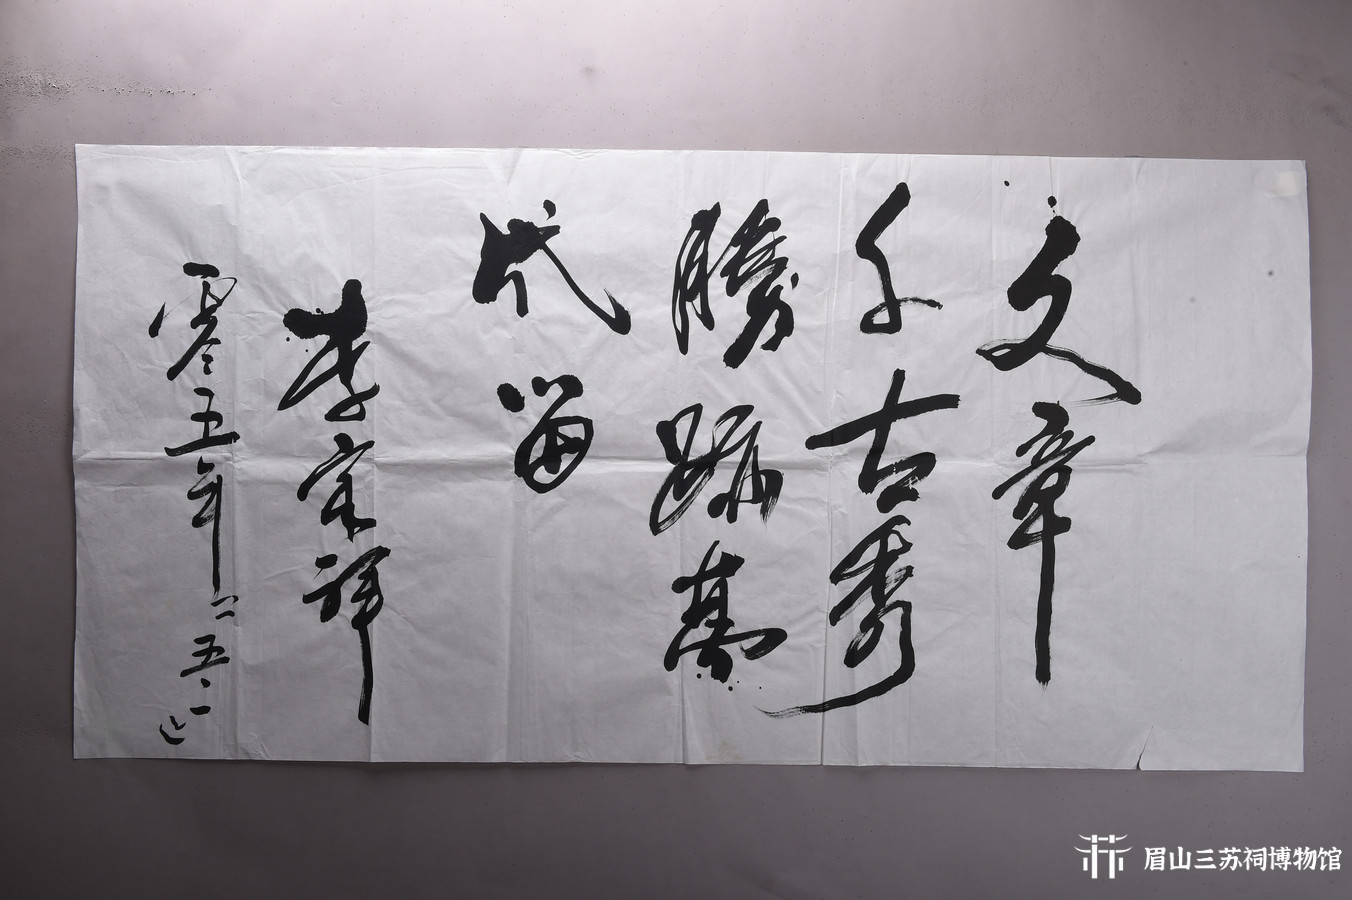 文章
千古秀
勝跡萬
代留
李宗祥
零五年二五.一
眉山三苏祠博物馆